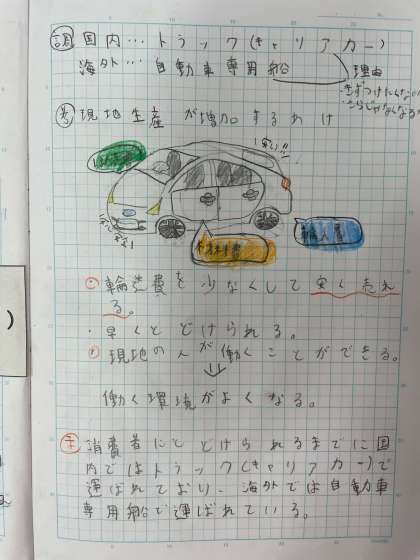 調 国内…トラック(キャリアカー)
海外…自動車専用船 理由
・きずつけにくい
考 現地生産が増加するわけ
安い!!
・輸送費を少なくして安く売れ
る。
・早くとどけられる。
・現地の人が働くことができる。
働く環境がよくなる。
ま 消費者にとどけられるまでに国
内ではトラック(キャリアカー)で
運ばれており、海外では自動車
専用船で運ばれている。